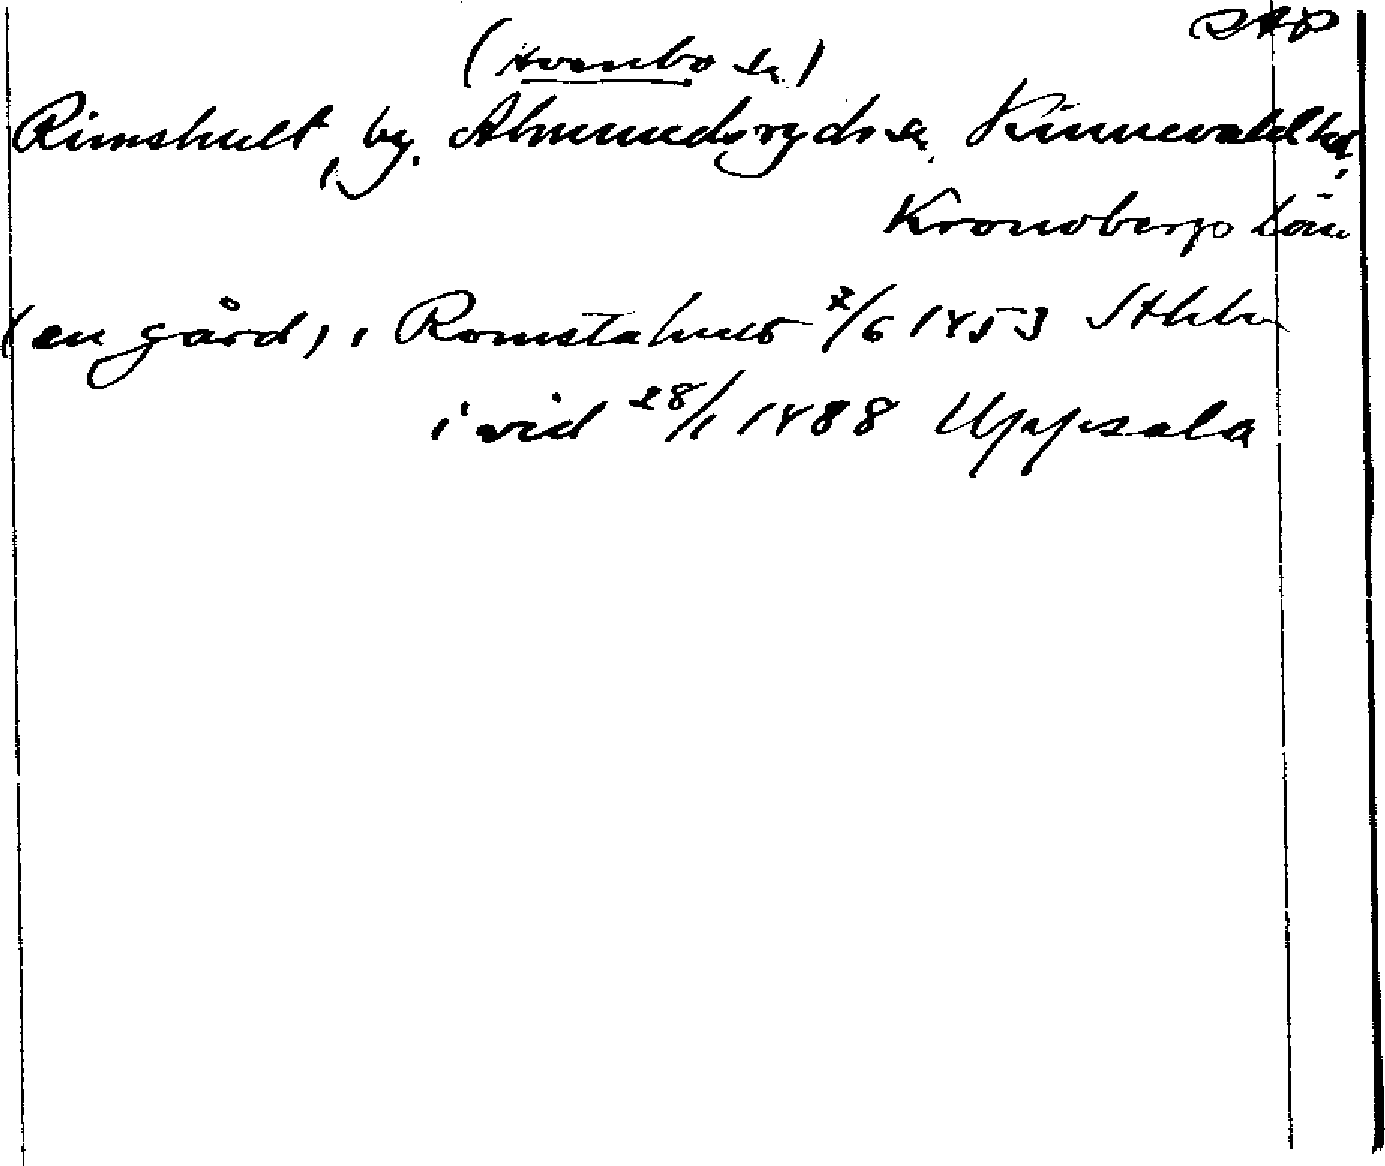 SAP
(Hvembo sn)
Rimshult, by, Almundsryds sn, Kinnevalds hd,
Kronobergs län
(en gård), i Romstahult 2/6 1453 Sthlm
i vid 28/1 1488 Uppsala